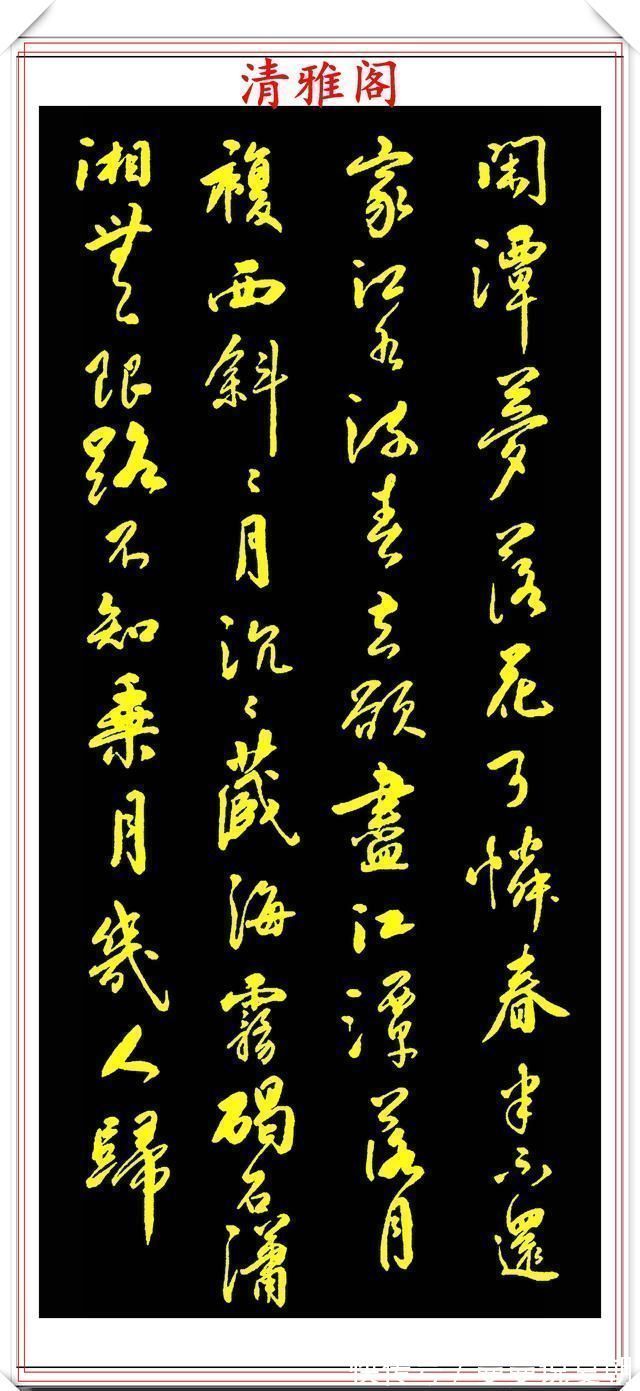 清雅阁
閑潭夢落花可憐春半不還
家江水流春去欲盡江潭落月
複西斜〻月沉〻藏海霧碣石瀟
湘無限路不知乘月幾人歸